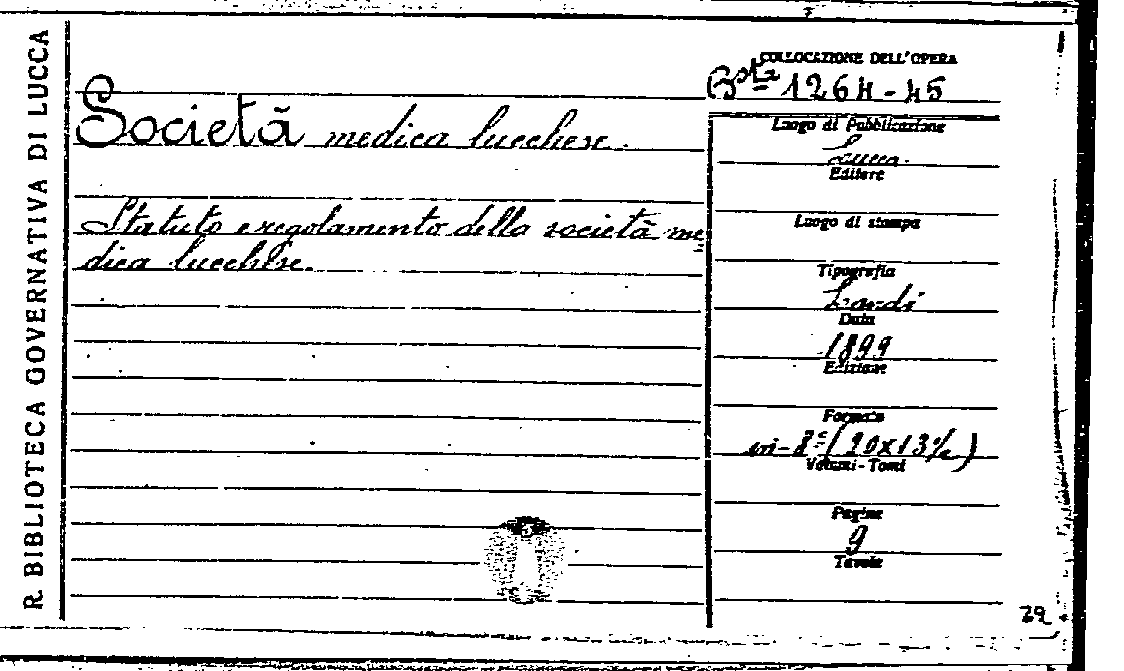 R. BIBLIOTECA GOVERNATIVA DI LUCCA
Società medica lucchese.
Statuto e regolamento della società me
dica lucchese.
COLLOCAZIONE DELL'OPERA
Bsta 1264-45
Luogo di Pubblicazione
Lucca
Editore
Luogo di stampa
Tipografia
Landi
Data
1899
Edizione
Formato
in-8° (20x13½)
Volumi - Tomi
Pagine
9
Tavole